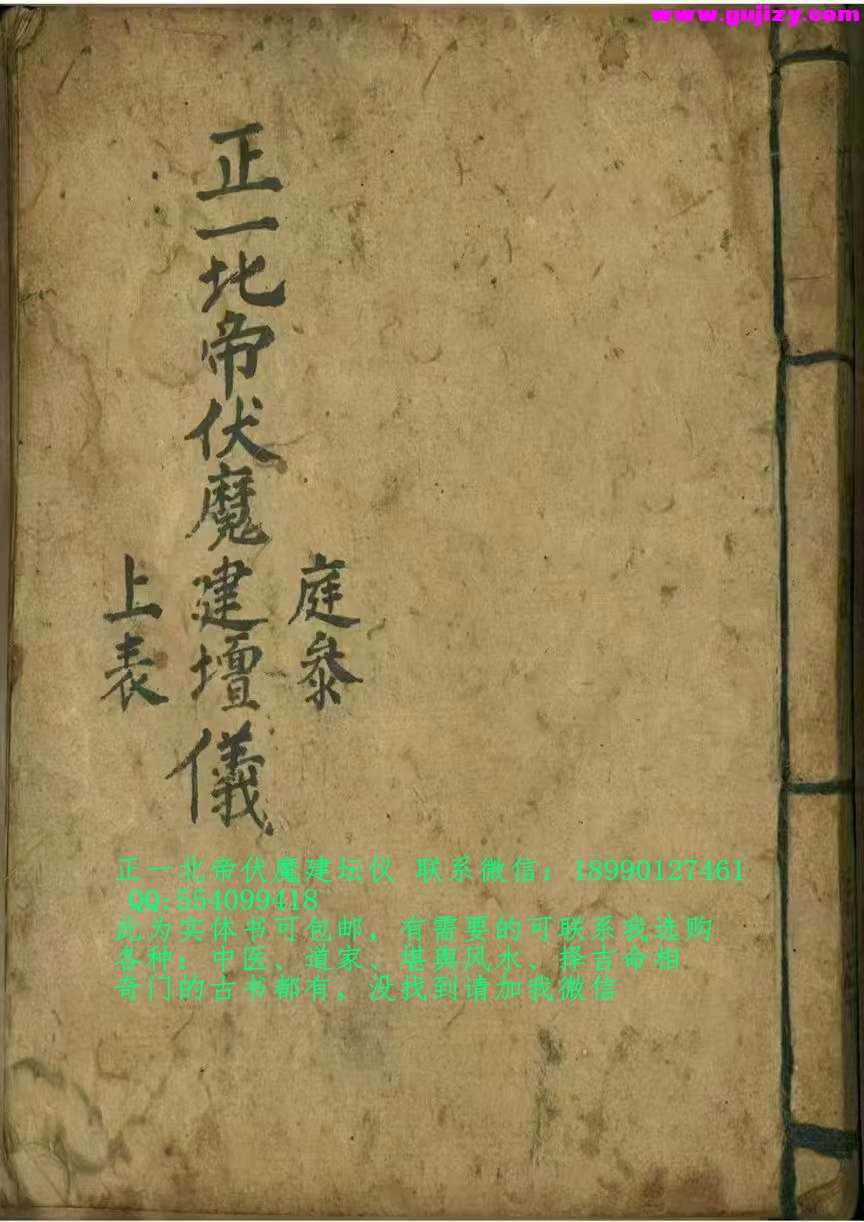 www.gujizy.com
庭參
正一北帝伏魔建壇儀
上表
正一北帝伏魔建坛仪 联系微信：18990127461
QQ:554099418
此为实体书可包邮，有需要的可联系我选购
各种：中医、道家、堪舆风水、择吉命相
奇门的古书都有，没找到请加我微信